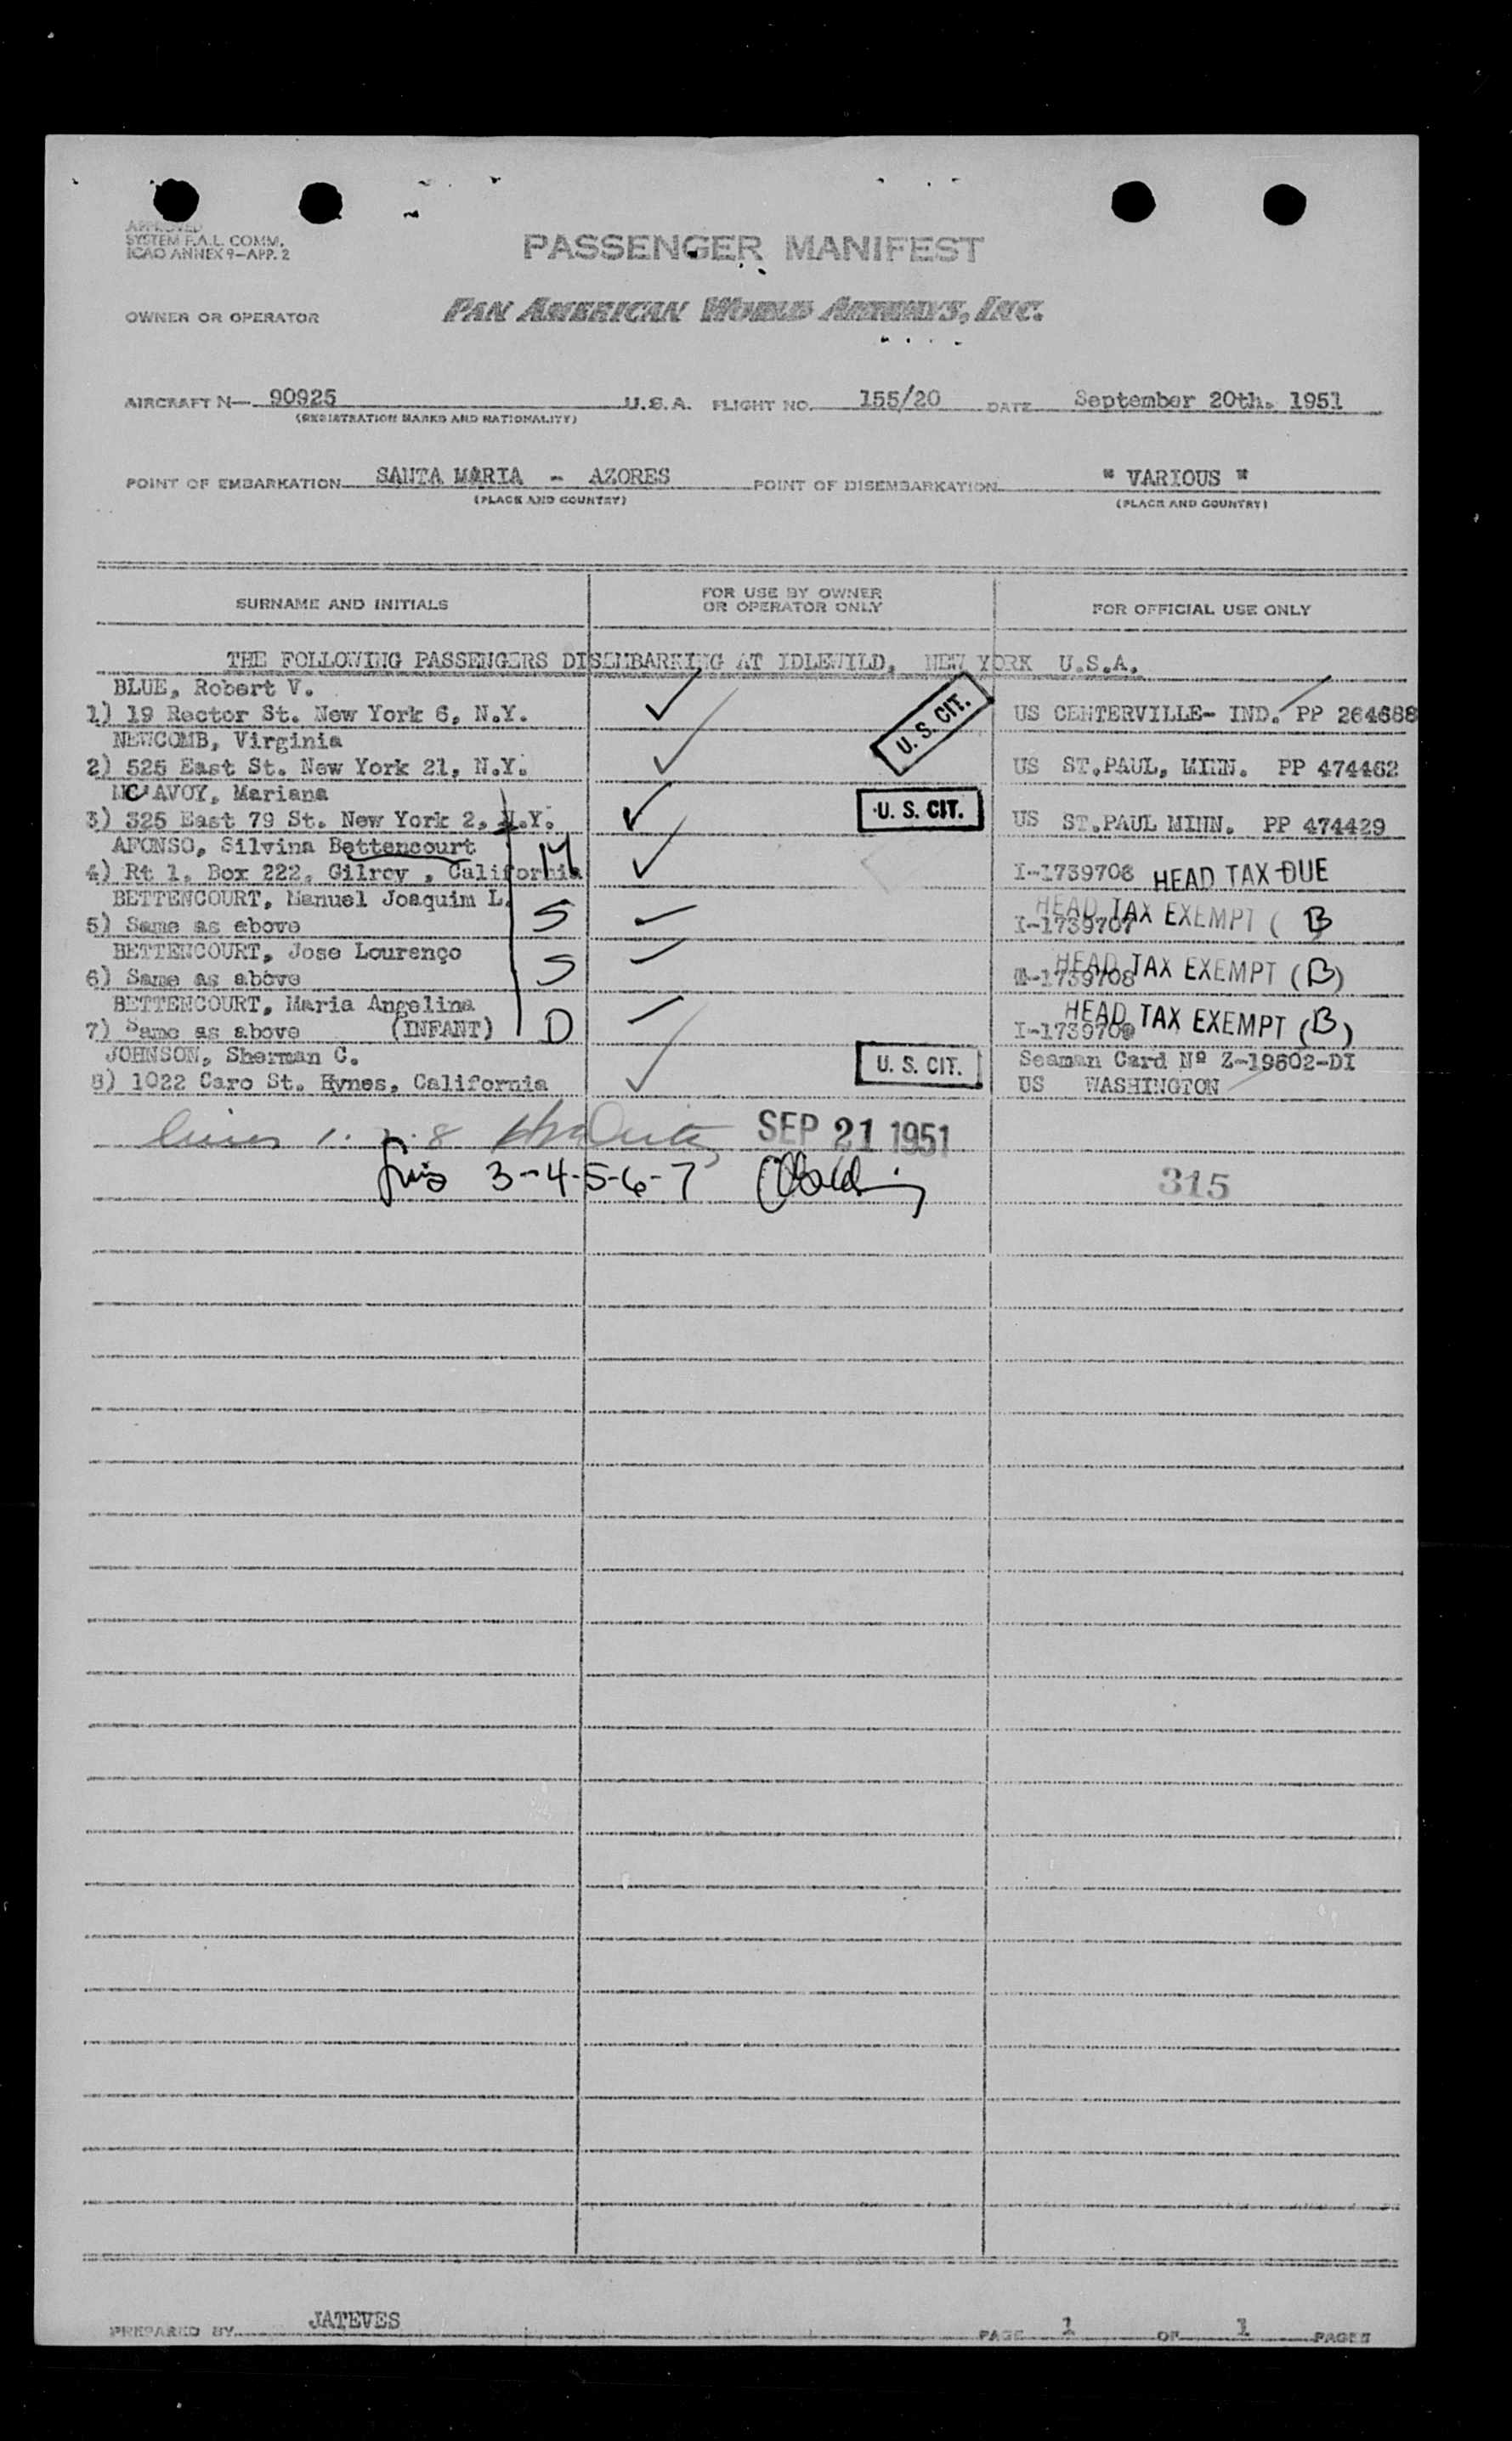 APPROVED
SYSTEM F.A.L. COMM.
ICAO ANNEX 9-APP. 2
PASSENGER MANIFEST
OWNER OR OPERATOR PAN AMERICAN WORLD AIRWAYS, INC.
AIRCRAFT N- 90925 U.S.A. FLIGHT NO. 155/20 DATE September 20th. 1951
(REGISTRATION MARKS AND NATIONALITY)
POINT OF EMBARKATION SANTA MARIA - AZORES POINT OF DISEMBARKATION " VARIOUS "
(PLACE AND COUNTRY) (PLACE AND COUNTRY)
SURNAME AND INITIALS FOR USE BY OWNER OR OPERATOR ONLY FOR OFFICIAL USE ONLY
THE FOLLOWING PASSENGERS DISEMBARKING AT IDLEWILD, NEW YORK U.S.A.
BLUE, Robert V.
1) 19 Rector St. New York 6, N.Y. U. S. CIT. US CENTERVILLE- IND. PP 264688
NEWCOMB, Virginia
2) 525 East St. New York 21, N.Y. US ST.PAUL, MINN. PP 474462
MC AVOY, Mariana
3) 325 East 79 St. New York 2, N.Y. U. S. CIT. US ST.PAUL MINN. PP 474429
AFONSO, Silvina Bettencourt
4) Rt 1, Box 222, Gilroy , California M I-1739706 HEAD TAX DUE
BETTENCOURT, Manuel Joaquim L.
5) Same as above S I-1739707 HEAD TAX EXEMPT ( B
BETTENCOURT, Jose Lourenço
6) Same as above S I-1739708 HEAD TAX EXEMPT (B)
BETTENCOURT, Maria Angelina
7) Same as above (INFANT) D I-1739709 HEAD TAX EXEMPT (B)
JOHNSON, Sherman C. Seaman Card Nº Z-19602-DI
8) 1022 Caro St. Hynes, California U. S. CIT. US WASHINGTON
lines 1. 2. 8 SEP 21 1951
3-4-5-6-7 315
PREPARED BY JATEVES PAGE 1 OF 1 PAGES